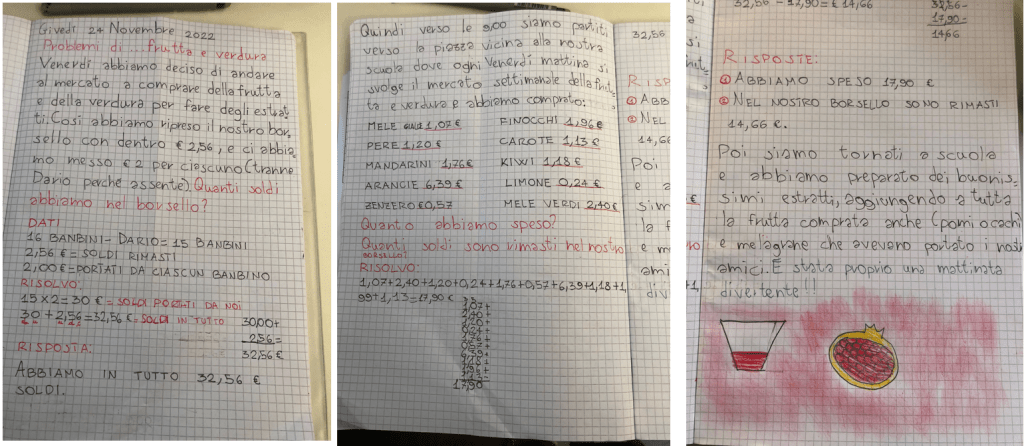 Givedì 24 Novembre 2022
Problemi di... frutta e verdura
Venerdì abbiamo deciso di andare
al mercato a comprare della frutta
e della verdura per fare degli estrat
ti. Così abbiamo ripreso il nostro bor
sello con dentro € 2,56, e ci abbia
mo messo € 2 per ciascuno (tranne
Dario perché assente). Quanti soldi
abbiamo nel borsello?
DATI
16 BANBINI - DARIO = 15 BANBINI
2,56 € = SOLDI RIMASTI
2,00 € = PORTATI DA CIASCUN BANBINO
RISOLVO:
15 X 2 = 30 € = SOLDI PORTATI DA NOI
30 + 2,56 = 32,56 € = SOLDI IN TUTTO
30,00+
2,56=
32,56 €
RISPOSTA:
ABBIAMO IN TUTTO 32,56 €
SOLDI.
Quindi verso le 9,00 siamo partiti
verso la piazza vicina alla nostra
scuola dove ogni Venerdì mattina si
svolge il mercato settimanale della frut
ta e verdura e abbiamo comprato:
MELE 1,07 € FINOCCHI 1,96 €
PERE 1,20 € CAROTE 1,13 €
MANDARINI 1,76 € KIWI 1,18 €
ARANCIE 6,39 € LIMONE 0,24 €
ZENZERO €0,57 MELE VERDI 2,40 €
Quanto abbiamo speso?
Quanti soldi sono rimasti nel nostro
BORSELLO?
RISOLVO:
1,07+2,40+1,20+0,24+1,76+0,57+6,39+1,18+1,
99+1,13=17,90 €
1,07+
2,40+
1,20+
0,24+
1,76+
0,57+
6,39+
1,18+
1,96+
17,90
32,56
RISP
① ABB
② NEL
14,66
Poi
e a
sim
la f
e m
ami
div
32,56 - 17,90 = € 14,66
32,56-
17,90=
14,66
RISPOSTE:
① ABBIAMO SPESO 17,90 €
② NEL NOSTRO BORSELLO SONO RIMASTI
14,66 €.
Poi siamo tornati a scuola
e abbiamo preparato dei buonis
simi estratti, aggiungendo a tutta
la frutta comprata anche (pomi o cachi)
e melagrane che avevano portato i nostri
amici. È stata proprio una mattinata
divertente!!